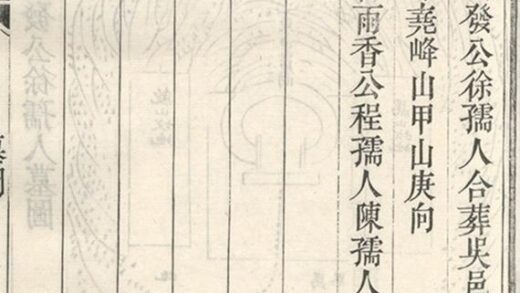 發公徐孺人合葬吳邑
堯峰山甲山庚向
雨香公程孺人陳孺人
發公徐孺人墓圖